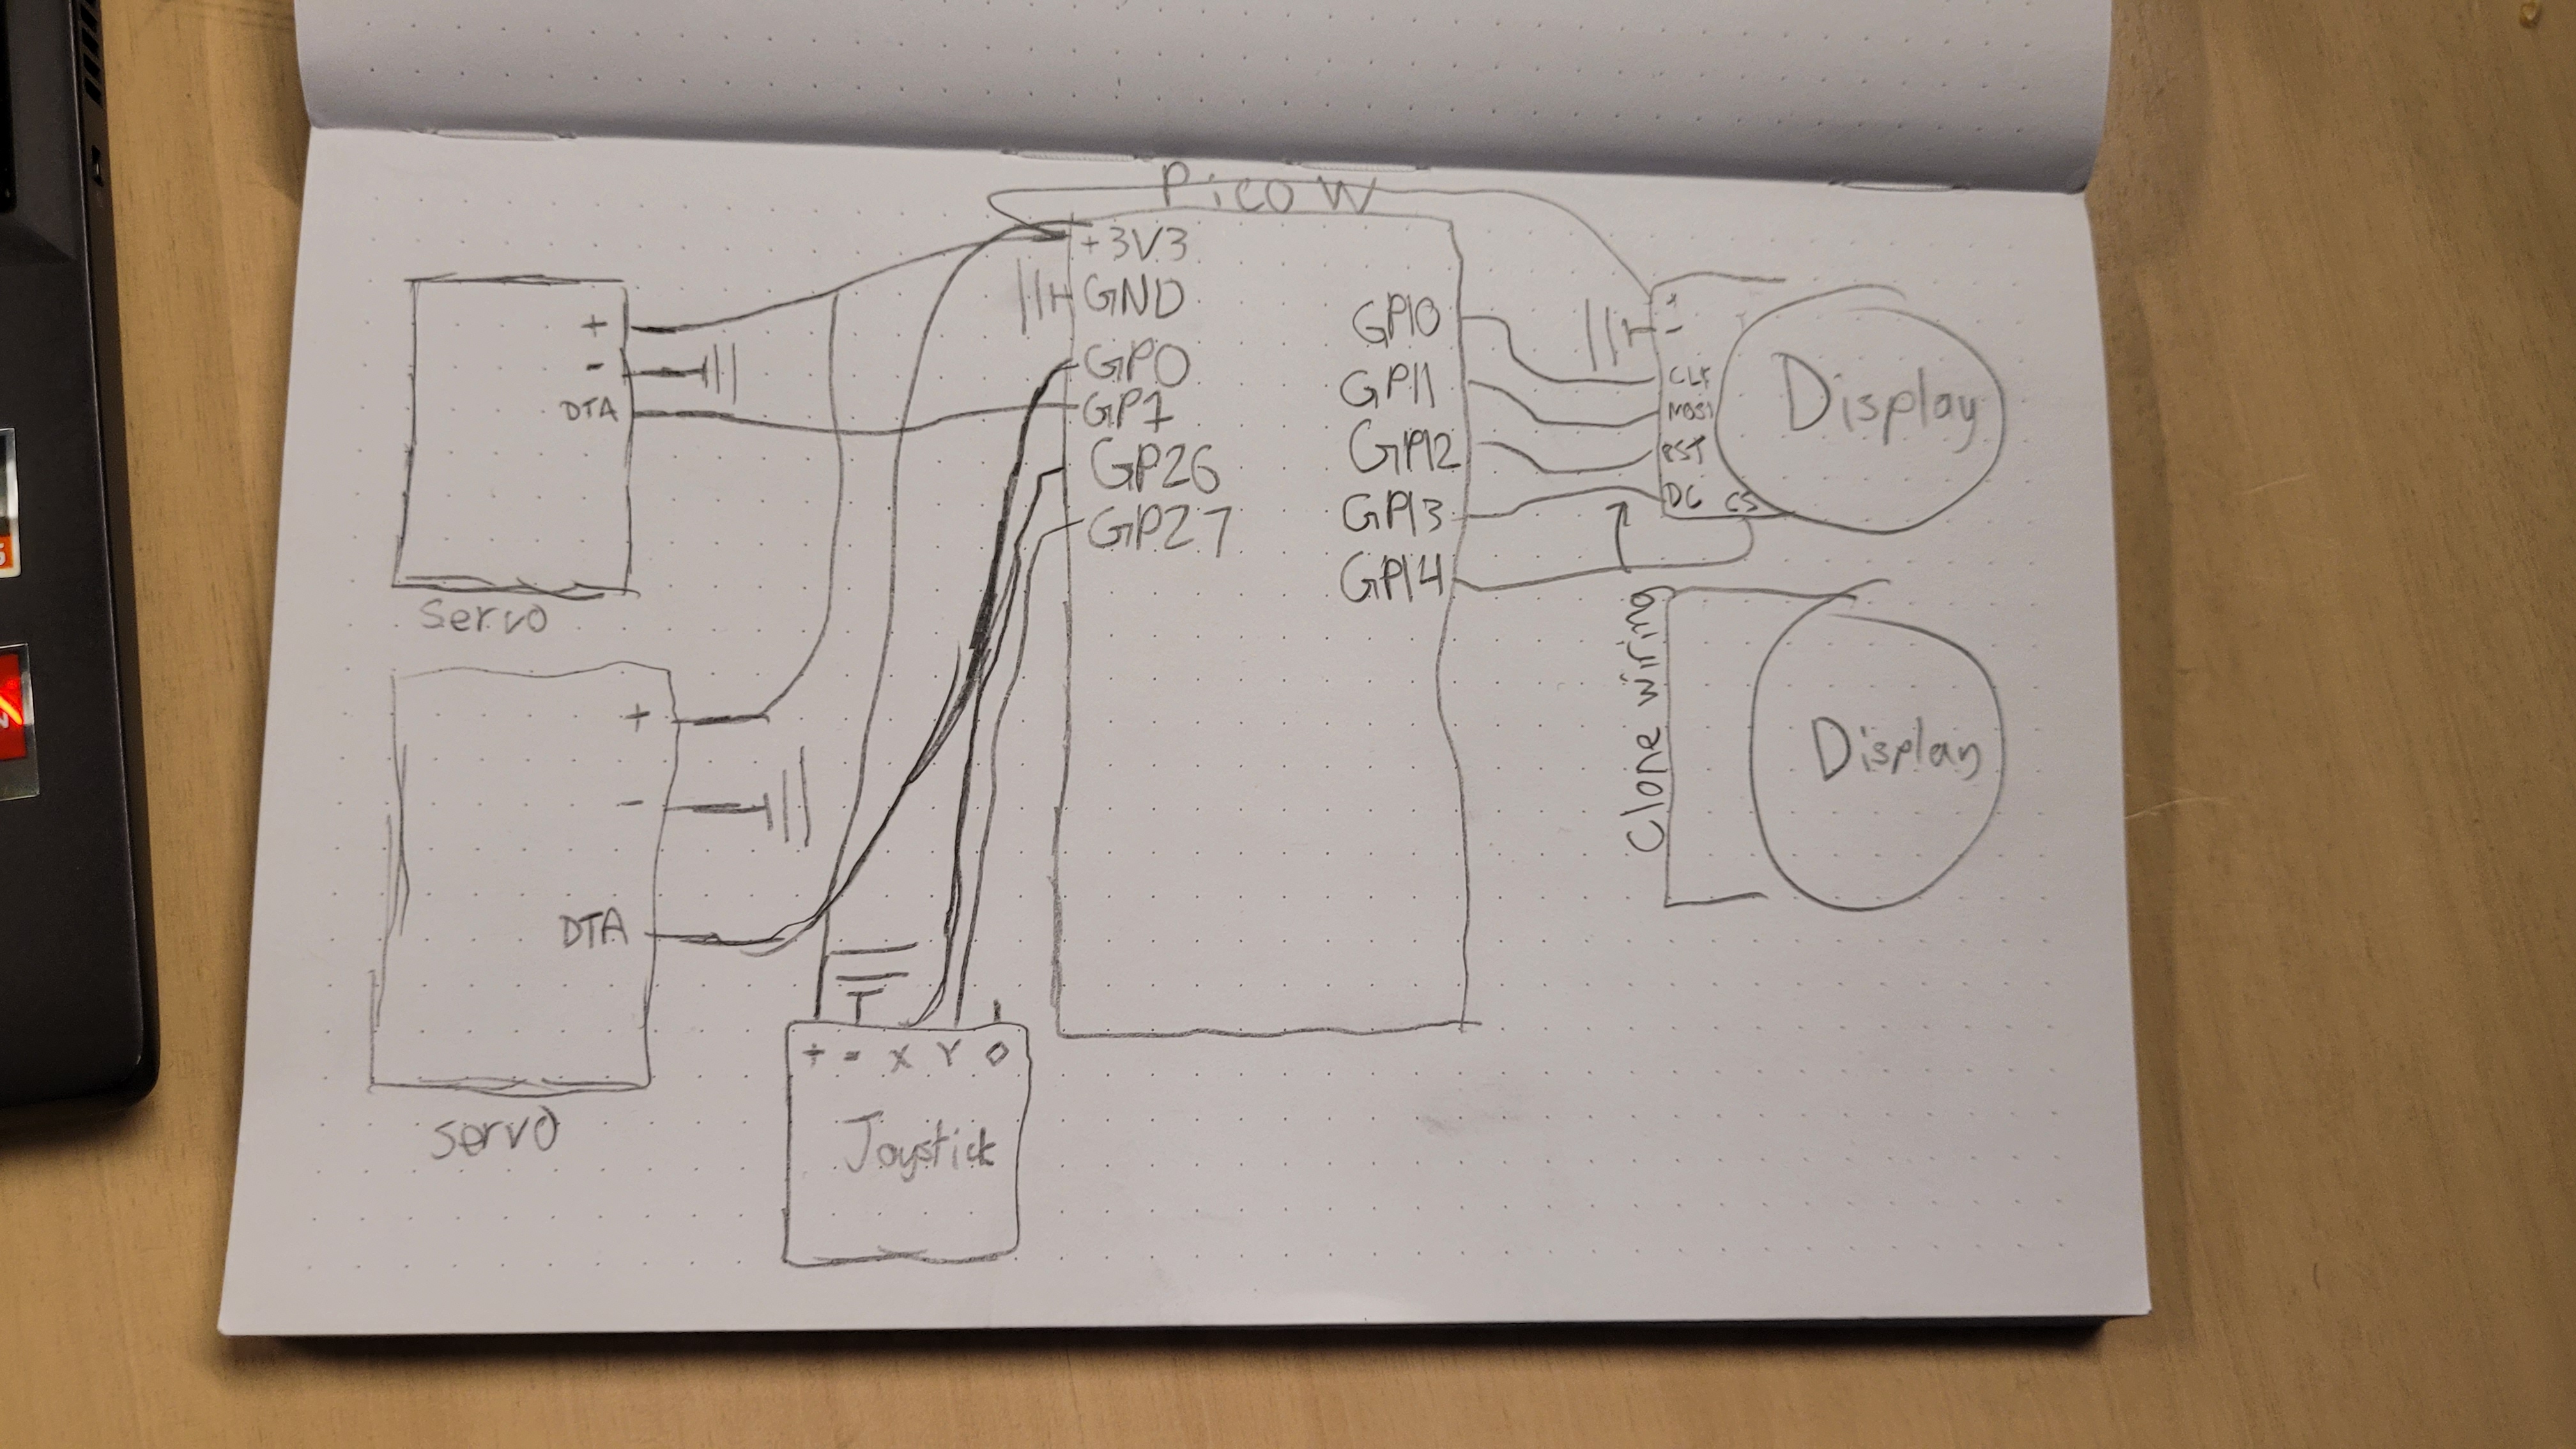 Pico W
+
-
DTA
Servo
+
-
DTA
Servo
+ - X Y O
Joystick
+3V3
GND
GP0
GP1
GP26
GP27
GP10
GP11
GP12
GP13
GP14
+
-
CLK
MOSI
RST
DC CS
Display
Clone wiring
Display